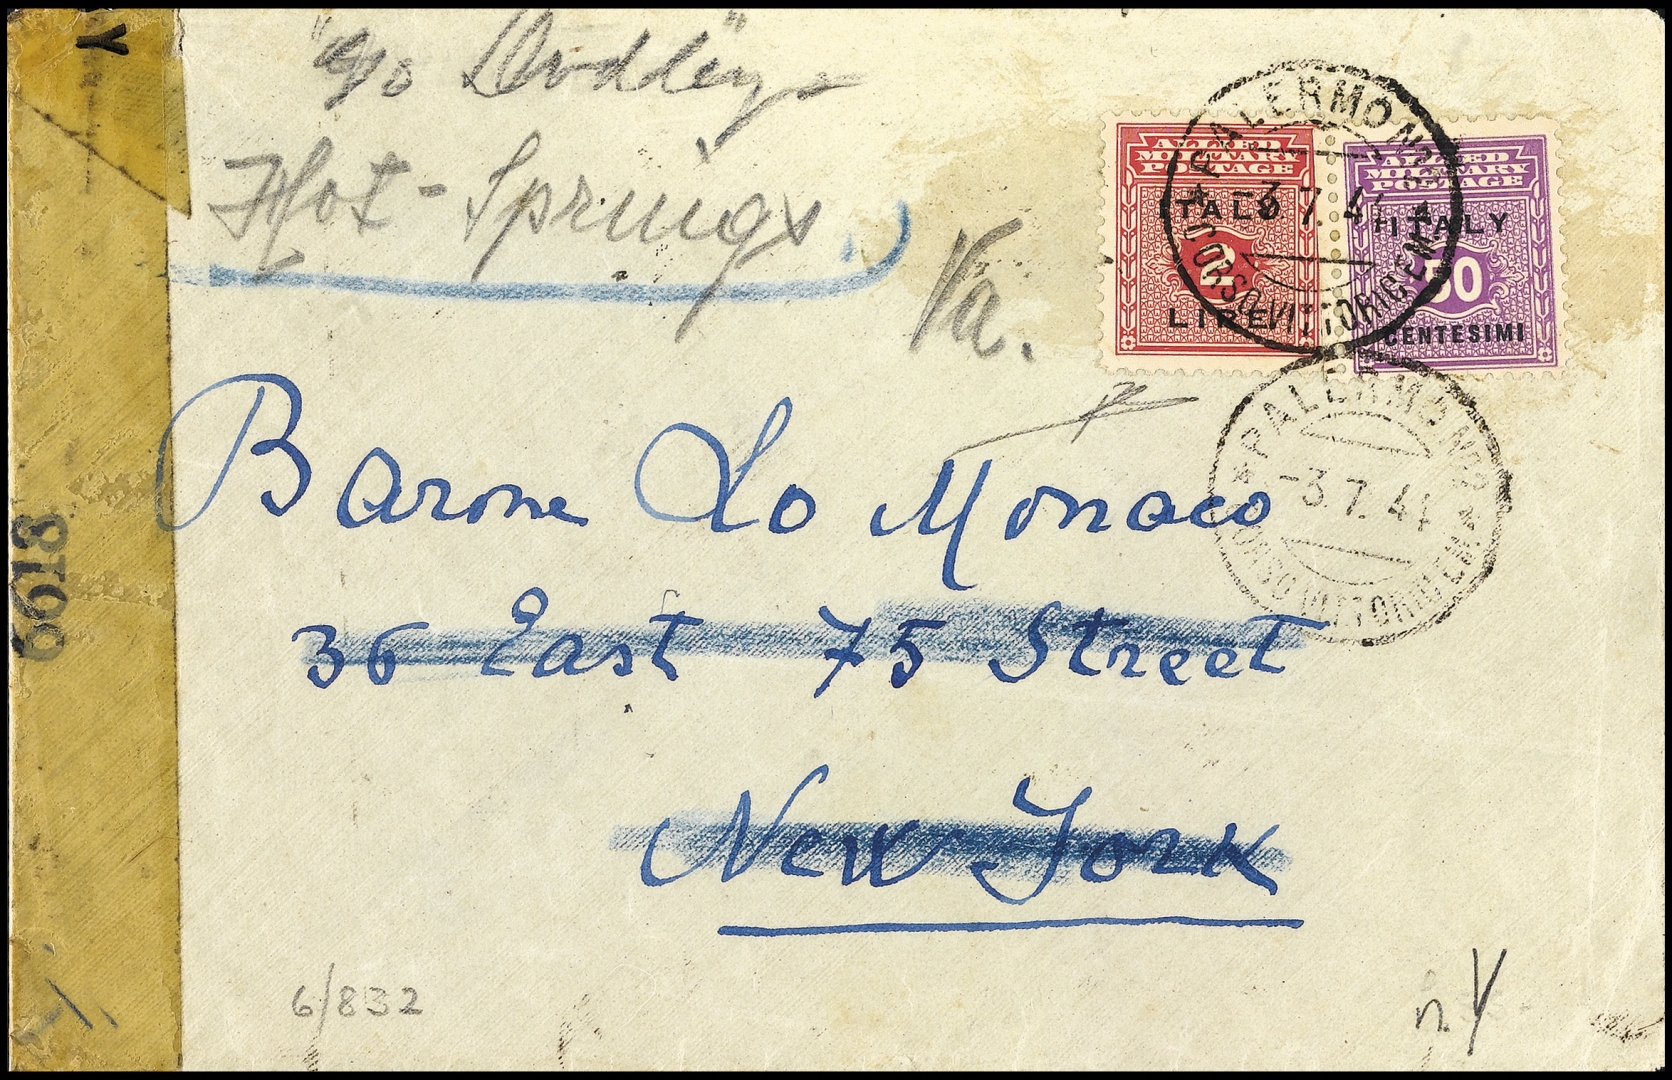 Y
"c/o Dudley"
Hot-Springs
Va.
ALLIED
MILITARY
POSTAGE
ITALY
2
LIRE
ALLIED
MILITARY
POSTAGE
ITALY
50
CENTESIMI
PALERMO Nº 8
-3.7.44
CORSO VITTORIO EM.
PALERMO Nº 8
-3.7.44
CORSO VITTORIO EM.
Barone Lo Monaco
36 East 75 Street
New York
6618
6/832
n.Y